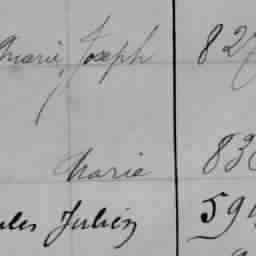 Marie Joseph 827
Marie 830
ules Julien 594